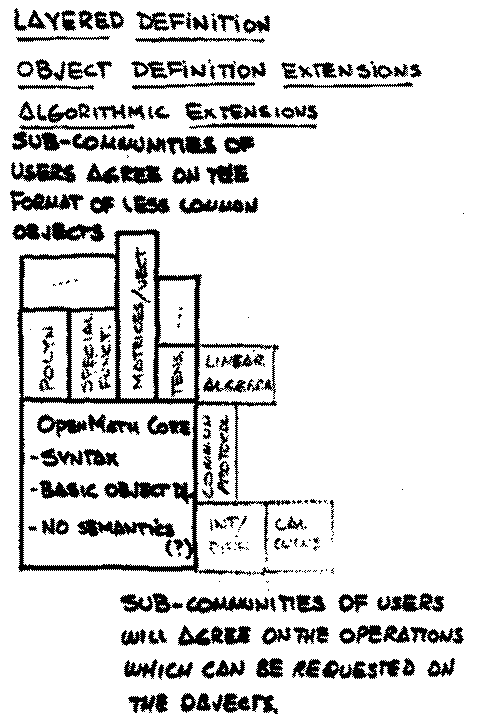 LAYERED DEFINITION
OBJECT DEFINITION EXTENSIONS
ALGORITHMIC EXTENSIONS
SUB-COMMUNITIES OF
USERS AGREE ON THE
FORMAT OF LESS COMMON
OBJECTS
....
...
POLYN
SPECIAL
FUNCT.
MATRICES/VECT
TENS.
LINEAR
ALGEBRA
OPENMATH CORE
- SYNTAX
- BASIC OBJECT
- NO SEMANTICS
(?)
COMMON
PROTOCOL
INT/
CAL
SUB-COMMUNITIES OF USERS
WILL AGREE ON THE OPERATIONS
WHICH CAN BE REQUESTED ON
THE OBJECTS.